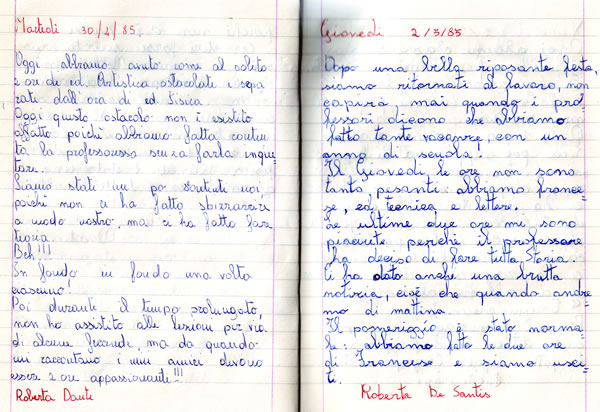 Martedì 30/4/85
Oggi abbiamo avuto come al solito
2 ore di ed. Artistica ostacolati e sepa
rati dall'ora di ed fisica.
Oggi questo ostacolo non è esistito
affatto poichè abbiamo fatto conten
ta la professoressa senza farla inqui
tare.
Siamo stati un po' noi,
poichè non ci ha fatto sbizzarrire
a modo nostro, ma ci ha fatto fare
teoria.
Beh!!!
In fondo in fondo una volta
ciascuno!
Poi durante il tempo prolungato,
non ho assistito alle lezioni per via
di alcune faccende, ma da quando
mi raccontano i miei amici devono
essere 2 ore appassionante!!!
Roberta Dante
Giovedì 2/5/85
Dopo una bella riposante festa,
siamo ritornati al lavoro, non
capirò, mai quando i pro
fessori dicono che abbiamo
fatto tante vacanze, con un
anno di scuola!
Il Giovedì le ore non sono
tanto, pesanti: abbiamo france
se, ed, tecnica e lettere.
Le ultime due ore mi sono
piaciute perchè il professore
ha deciso di fare tutta Storia.
Ci ha dato anche una brutta
notizia, cioè che quando andre
mo di mattina
Il pomeriggio è stato norma
le: abbiamo fatto le due ore
di Francese e siamo usci
ti.
Roberta De Santis